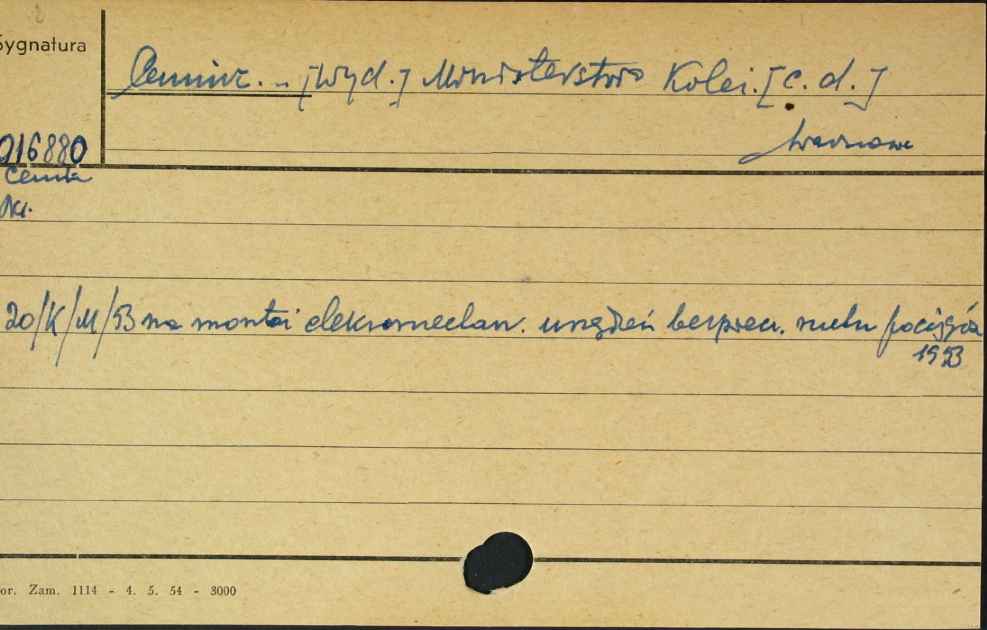 Sygnatura
Cennik. - [Wyd.] Ministerstwo Kolei. [c. d.]
016880
Warszawa
20/K/M/53 na montaż elekromechan. urządzeń bezpiecz. ruchu pociągów
1953
or. Zam. 1114 - 4. 5. 54 - 3000